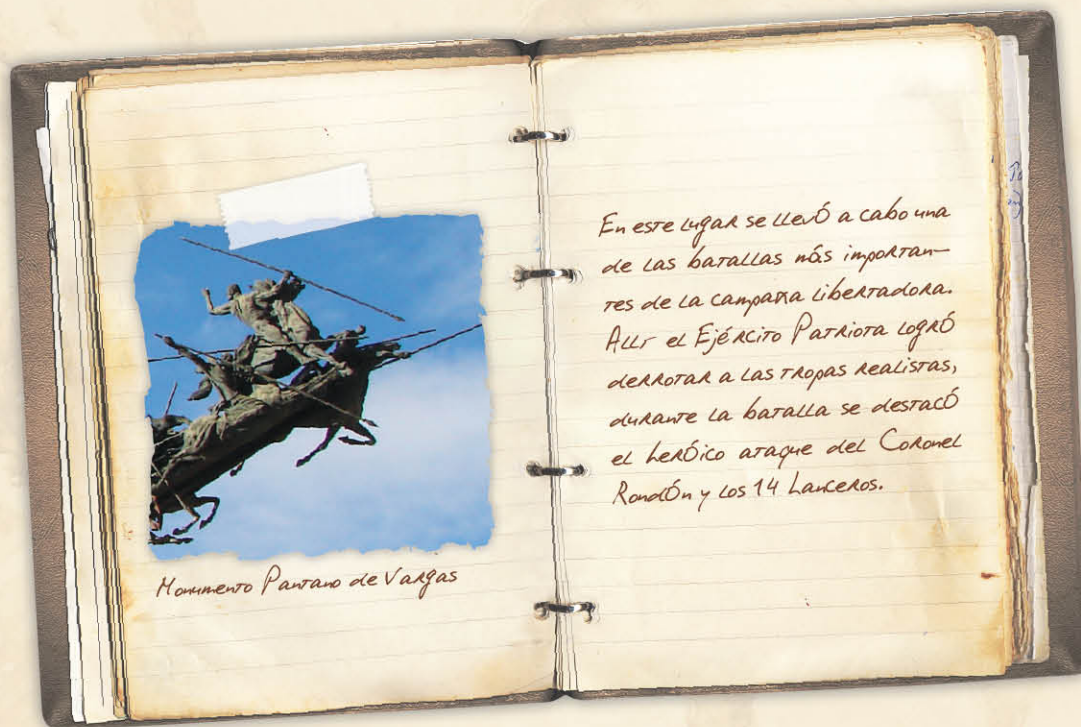 Monumento Pantano de Vargas
En este lugar se llevó a cabo una
de las batallas más importan-
tes de la campaña libertadora.
Allí el Ejército Patriota logró
derrotar a las tropas realistas,
durante la batalla se destacó
el heróico ataque del Coronel
Rondón y los 14 Lanceros.